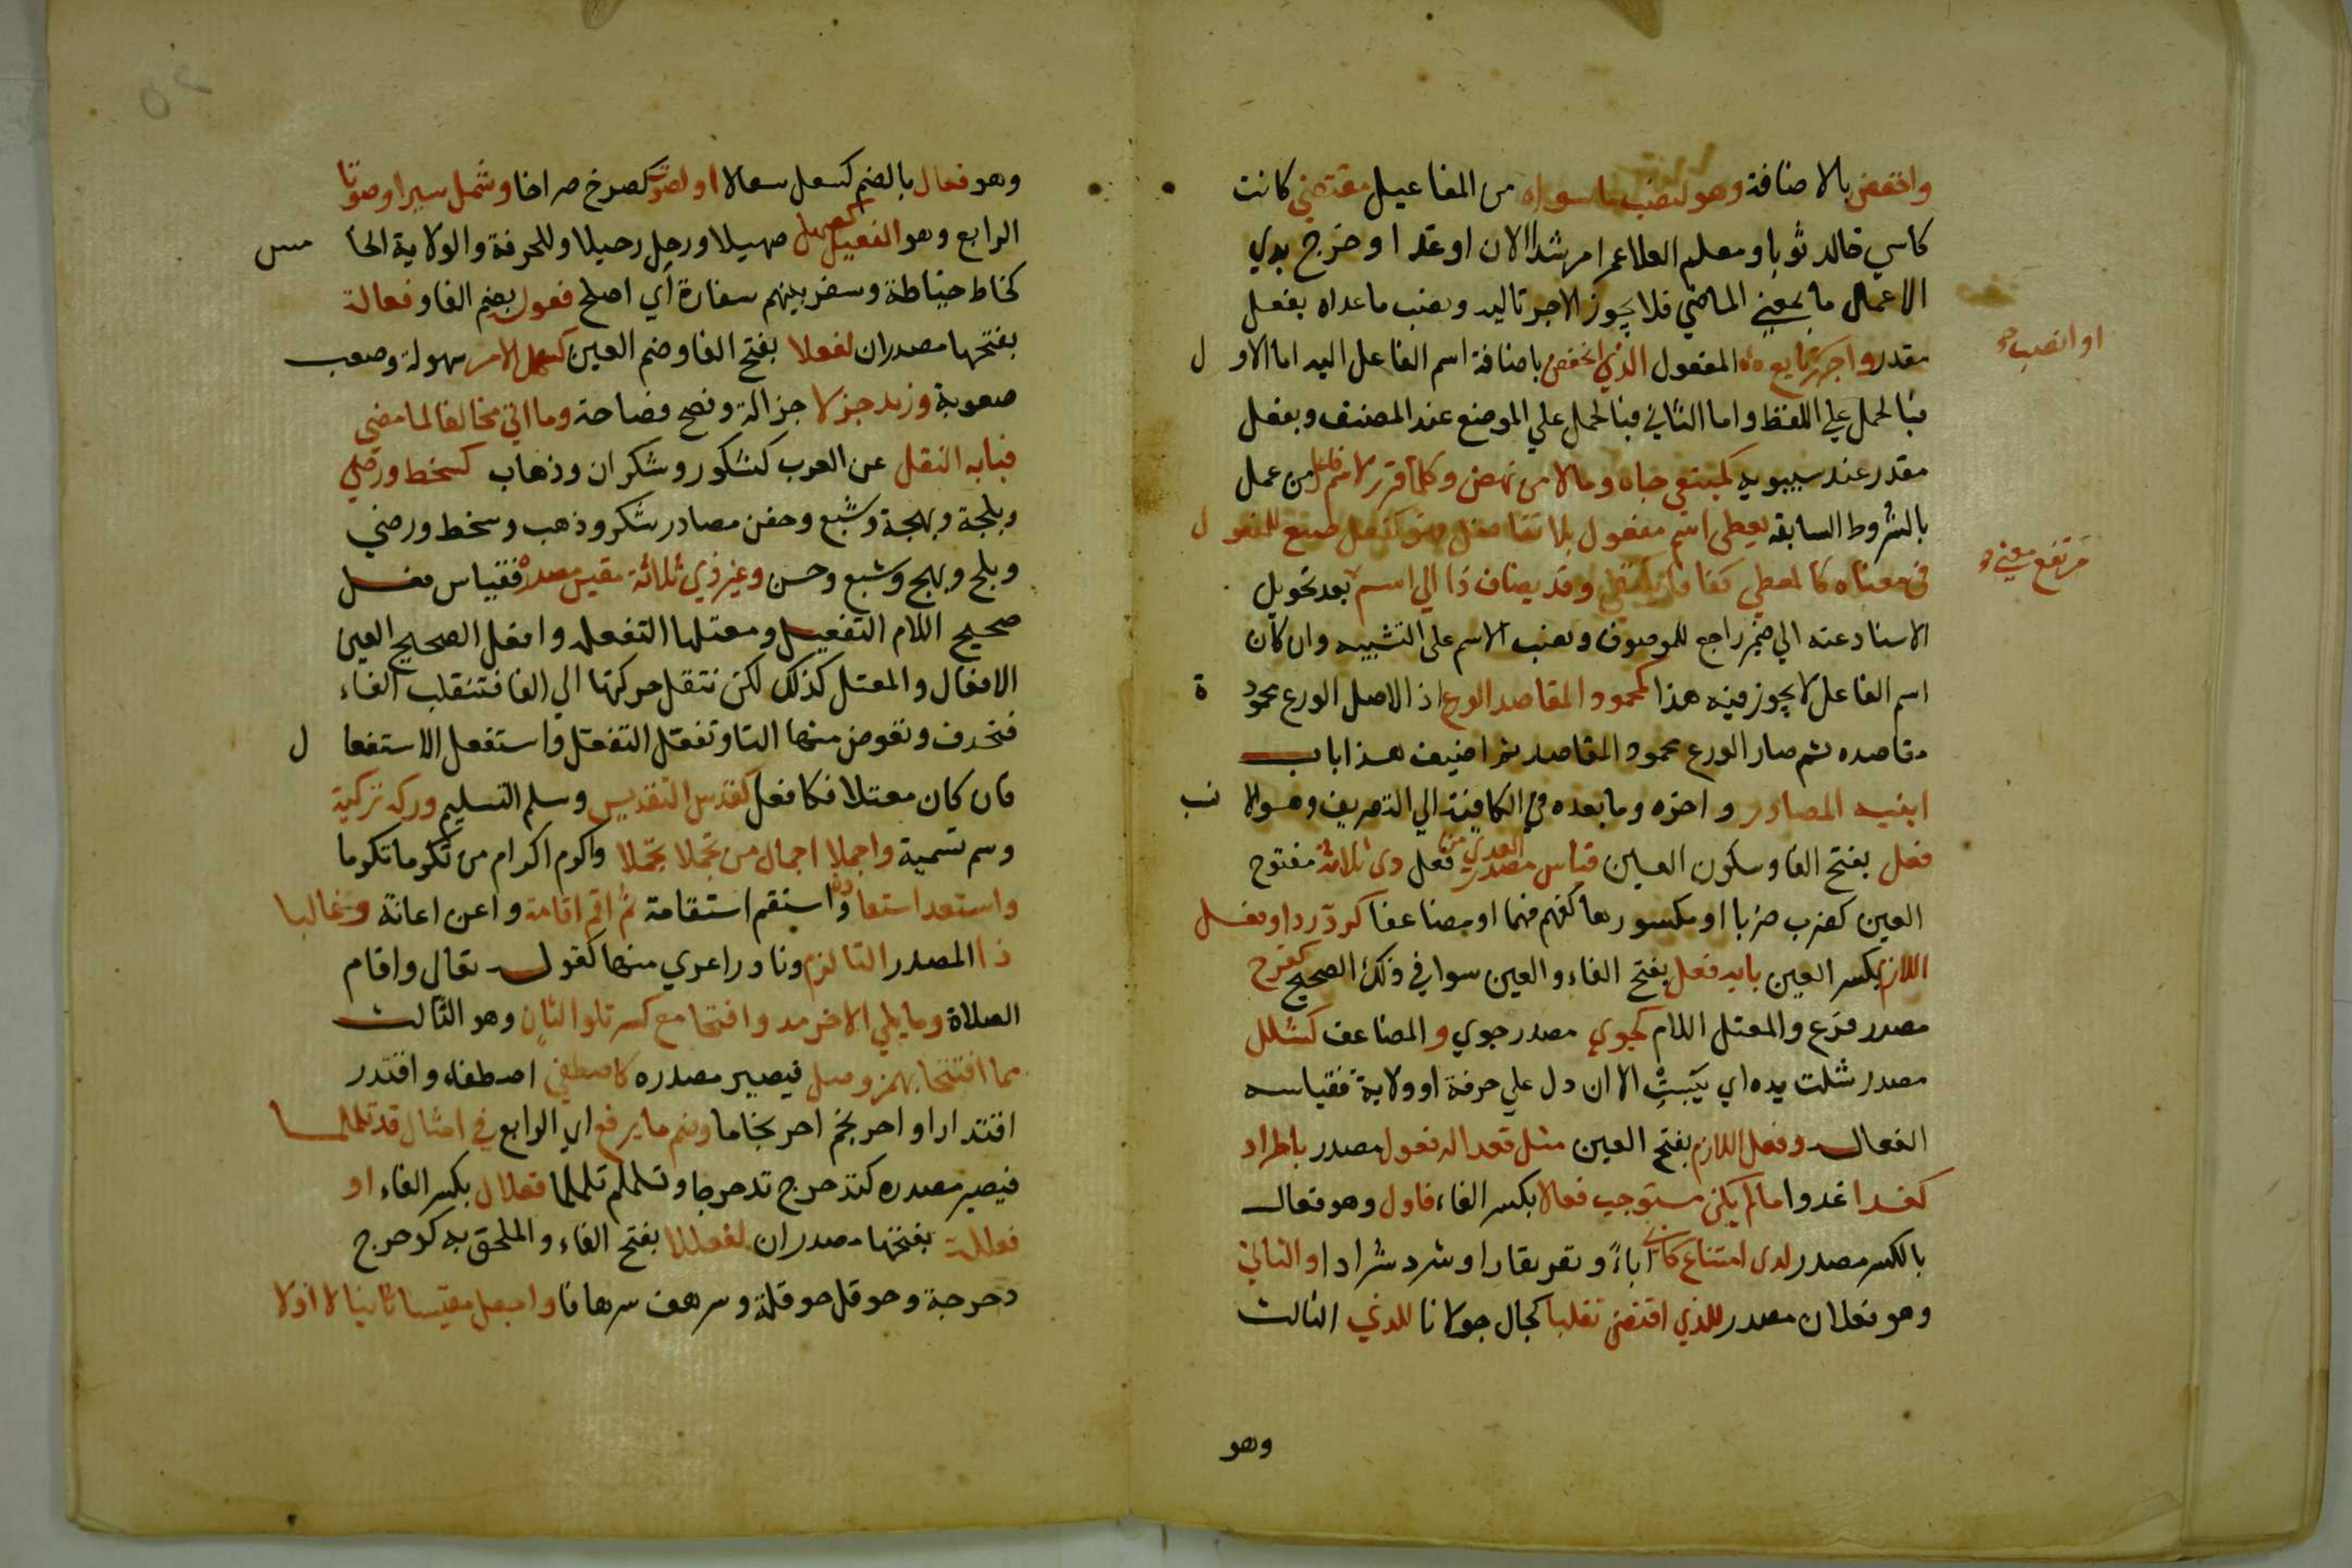 واخفض بالاضافة وهو لنصب ما سواه من المفاعيل مقتضي كانت
كاسي خالد ثوبا ومعلم العلا عمرا مرشدا الان او غدا وخرج بذي
الاعمال ما بمعني الماضي فلا يجوز الا جر تاليه ونصب ماعداه بفعل
او انصب
مقدر واجرر تابع المفعول الذي انخفض باضافة اسم الفاعل اليه اما الاول
فبالحمل علي اللفظ واما الثاني فبالحمل علي الموضع عند المصنف وبفعل
مقدر عند سيبويه كمبتغي جاه ومالا من نهض وكلما قرر لاسم فاعل من عمل
بالشروط السابقه يعطي اسم مفعول بلا تفاضل فهو كفعل صيغ للمفعول
مرتفع معني
في معناه كالمعطي كفافا يكتفي وقد يضاف ذا الي اسم بعد تحويل
الاسناد عنه الي ضمير راجع للموصوف ونصب الاسم علي التشبيه وان كان
اسم الفاعل لا يجوز فيه هذا كمحمود المقاصد الورع اذ الاصل الورع محمودة
مقاصده ثم صار الورع محمود المقاصد ثم اضيف هذا باب
ابنيه المصادر واخره وما بعده في الكافية الي التصريف وهو الانسب
فعل بفتح الفا وسكون العين قياس مصدر المعدي من فعل ذي ثلاثة مفتوح
العين كضرب ضربا او مكسورها كفهم فهما او مضاعفا كرد ردا وفعل
اللازم بكسر العين بابه فعل بفتح الفاء والعين سوا في ذلك الصحيح كفرح
مصدر فرح والمعتل اللام كجوي مصدر جوي والمضاعف كشلل
مصدر شلت يده اي يبست الا ان دل علي حرفة او ولاية فقياسه
الفعال وفعل اللازم بفتح العين مثل قعد اله فعول مصدر باطراد
كغدا غدوا ما لم يكن مستوجب فعالا بكسر الفاء فاول وهو فعال
بالكسر مصدر لذي امتناع كابي اباءً ونفر نفارا وشرد شرادا والثاني
وهو فعلان مصدر للذي اقتضي تقلبا كجال جولانا للذي الثالث
وهو
وهو فعال بالضم كسعل سعالا او لصوت كصرخ صراخا وشمل سيرا وصوتا
الرابع وهو الفعيل كصهل صهيلا ورحل رحيلا وللحرفة والولاية الخامس
كخاط خياطة وسفر بينهم سفارة أي اصلح فعول بضم الفا وفعالة
بفتحها مصدران لفعلا بفتح الفا وضم العين كسهل الامر سهولة وصعب
صعوبة وزيد جزلا جزالة وفصح فصاحة وما اتي مخالفا لما مضي
فبابه النقل عن العرب كشكور وشكران وذهاب كسخط ورضي
وبلجة وبهجة وشبع وحسن مصادر شكر وذهب وسخط ورضي
وبلج وبهج وشبع وحسن وغير ذي ثلاثة مقيس مصدره فقياس فعل
صحيح اللام التفعيل ومعتلها التفعلة وافعل الصحيح العين
الافعال والمعتل كذلك لكن تنقل حركتها الي الفا فتنقلب الفاء
فتحذف وتعوض منها التا وتفعل التفعل واستفعل الاستفعال
فان كان معتلا فكافعل كقدس التقديس وسلم التسليم وزكه تزكية
وسم تسمية واجملا اجمال من تجملا تجملا واكرم اكرام من تكرما تكرما
واستعذ استعاذة واستقم استقامة ثم اقم اقامة واعن اعانة وغالبا
ذا المصدر التا لزم ونادرا عري منها كقوله تعالي واقام
الصلاة وما يلي الاخر مد وافتحا مع كسر تلو الثان وهو الثالث
مما افتتحا بهمز وصل فيصير مصدره كاصطفي اصطفاء واقتدر
اقتدارا واحرنجم احرنجاما وضم ما يرفع اي الرابع في امثال قد تلملما
فيصير مصدره كتدحرج تدحرجا وتلملم تلملما فعلال بكسر الفاء او
فعللة بفتحها مصدران لفعللا بفتح الفاء والملحق به كدحرج
دحرجة وحوقل حوقلة وسرهف سرهافا واجعل مقيسا ثانيا لا اولا